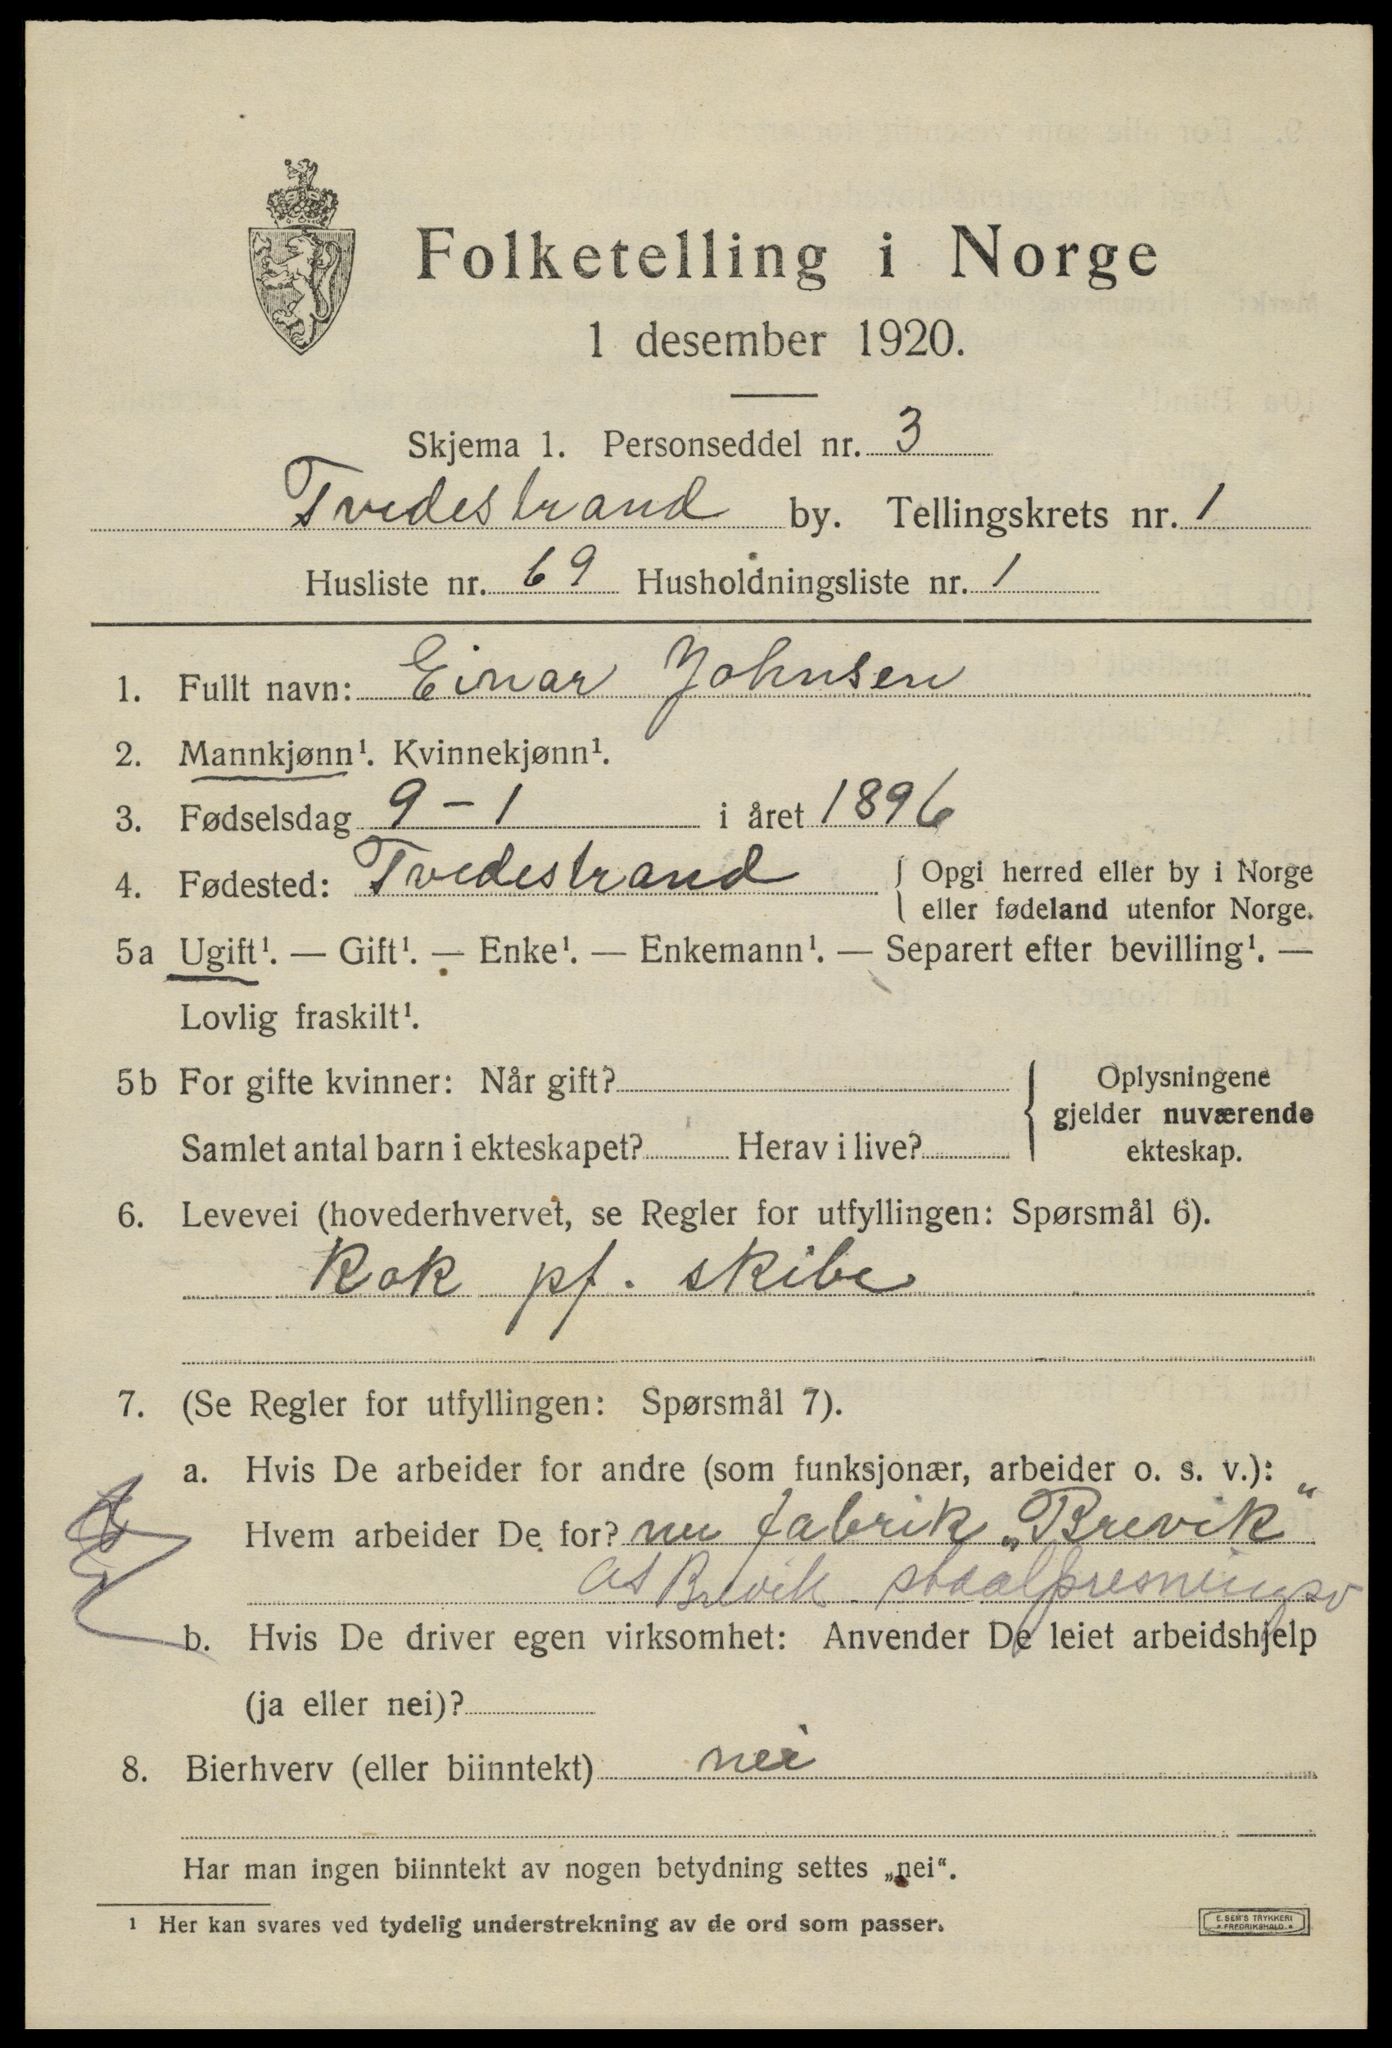 Folketelling i Norge
1 desember 1920.
Skjema 1. Personseddel nr. 3
Tvedestrand by. Tellingskrets nr. 1
Husliste nr. 69 Husholdningsliste nr. 1
1. Fullt navn: Einar Johnsen
2. Mannkjønn¹. Kvinnekjønn¹.
3. Fødselsdag 9-1 i året 1896
4. Fødested: Tvedestrand { Opgi herred eller by i Norge
eller fødeland utenfor Norge.
5a Ugift¹. — Gift¹. — Enke¹. — Enkemann¹. — Separert efter bevilling¹. —
Lovlig fraskilt¹.
5b For gifte kvinner: Når gift? { Oplysningene
gjelder nuværende
Samlet antal barn i ekteskapet? Herav i live? ekteskap.
6. Levevei (hovederhvervet, se Regler for utfyllingen: Spørsmål 6).
Kok pf. skibe
7. (Se Regler for utfyllingen: Spørsmål 7).
a. Hvis De arbeider for andre (som funksjonær, arbeider o. s. v.):
Hvem arbeider De for? nu fabrik „Brevik“
AS Brevik staalpresningsv
b. Hvis De driver egen virksomhet: Anvender De leiet arbeidshjelp
(ja eller nei)?
8. Bierhverv (eller biinntekt) nei
Har man ingen biinntekt av nogen betydning settes „nei“.
¹ Her kan svares ved tydelig understrekning av de ord som passer.
E. SEM'S TRYKKERI
FREDRIKSHALD